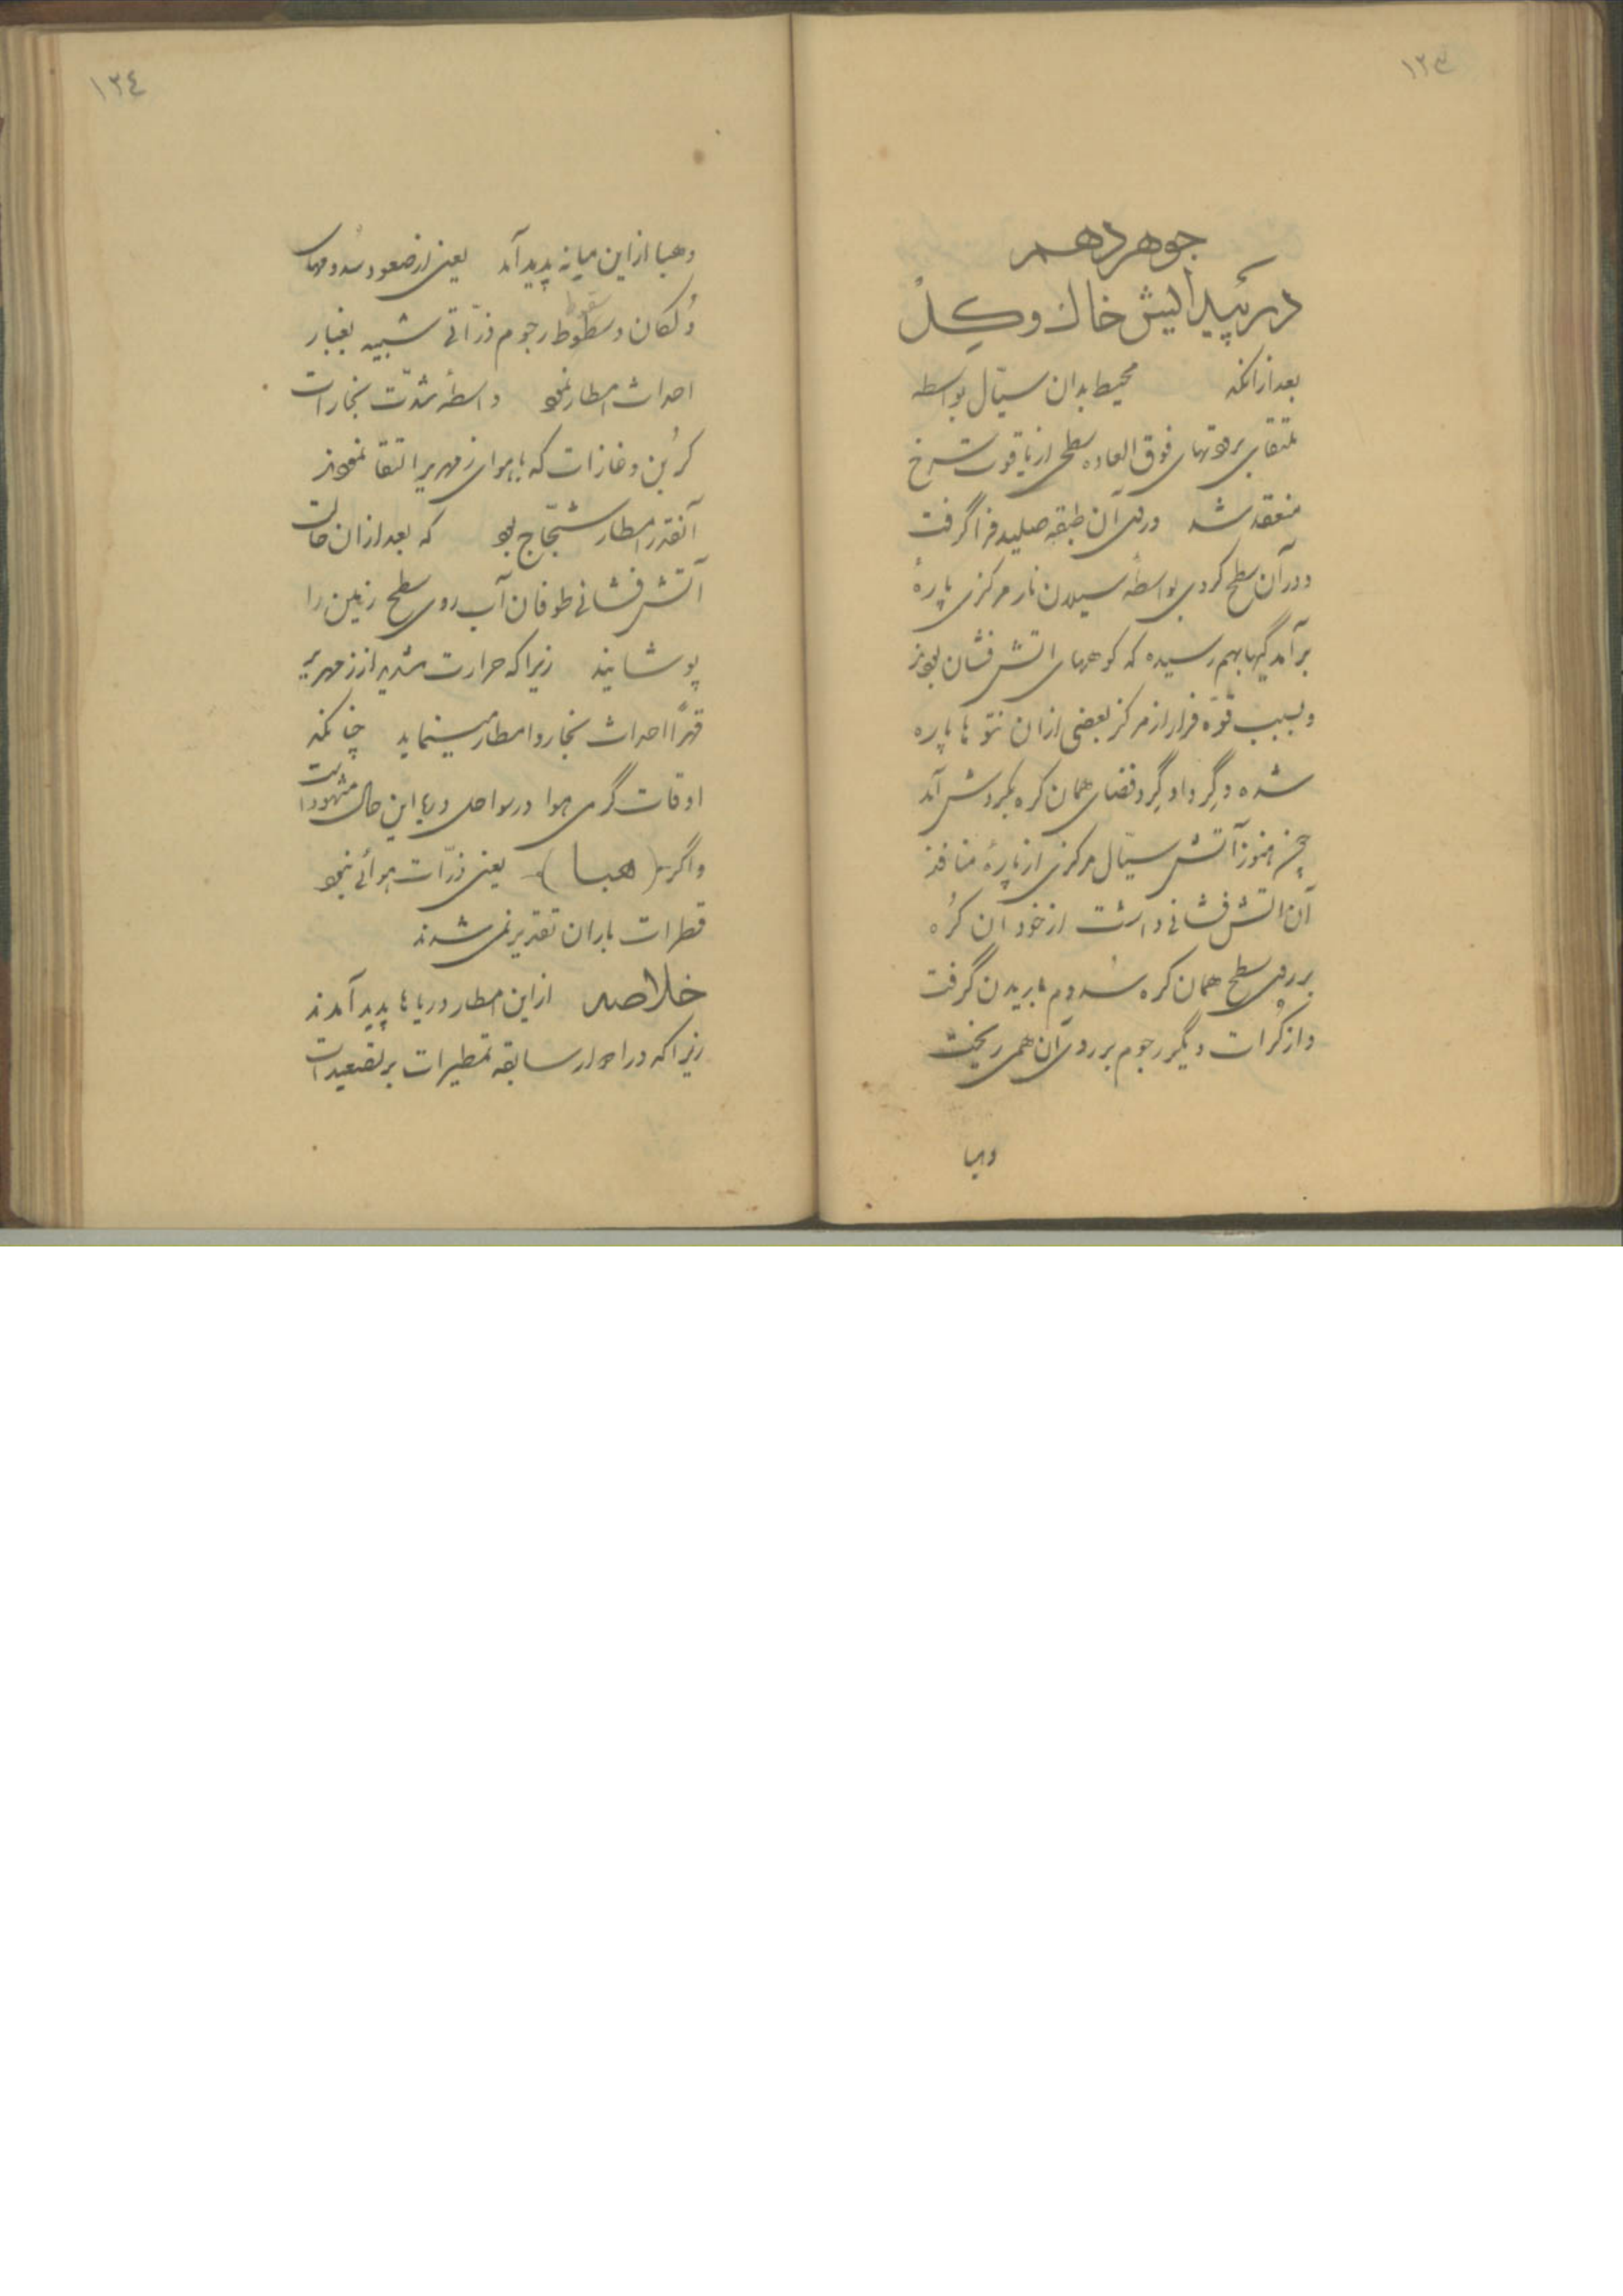 ۱۲۳
جوهر دهم
در پیدایش خاک و گل
بعد از آنکه محیط بدان سیّال بواسطه
تلتقای برودتهای فوق العاده سطحی از یاقوت سرخ
منعقد شد و روی آن طبقه صلبیه فرا گرفت
و در آن سطح کروی بواسطهٔ سیلان نار مرکزی پارهٔ
برآمدگیها بهم رسیده که کوههای اتش فشان بودند
و بسبب قوّه فرار از مرکز بعضی ازان نتوّها پاره
شده و گرداگرد فضای همان کره بگردش آمد
چون هنوز آتش سیّال مرکزی از پارهٔ منافذ
آن اتش فشانی داشت از خود آن کُره
بر روی سطح همان کره سدوم باریدن گرفت
و از کُرات دیگر رجوم بر روی آن همی ریخت
وهبا
۱۲٤
وهبا از این میانه پدید آمد یعنی از صعود سدومهای
وُلکان و سقوط رجوم ذرّاتی شبیه بغبار
احداث امطار نمود واسطهٔ شدّت بخارات
کرُبن و غازات که با هوای زمهریر التقا نمودند
آنقدر امطار ثجّاج بود که بعد از ان حالت
آتش فشانی طوفان آب روی سطح زمین را
پوشانید زیرا که حرارت شدید از زمهریر
قهراً احداث بخار و امطار مینماید چنانکه
اوقات گرمی هوا در سواحل دریا این حال مشهود است
و اگر (هبا) یعنی ذرّات هوائی نبود
قطرات باران تقدیر نمی شدند
خلاصه از این امطار دریاها پدید آمدند
زیرا که در ادوار سابقه تمطیرات بر تصعیدات